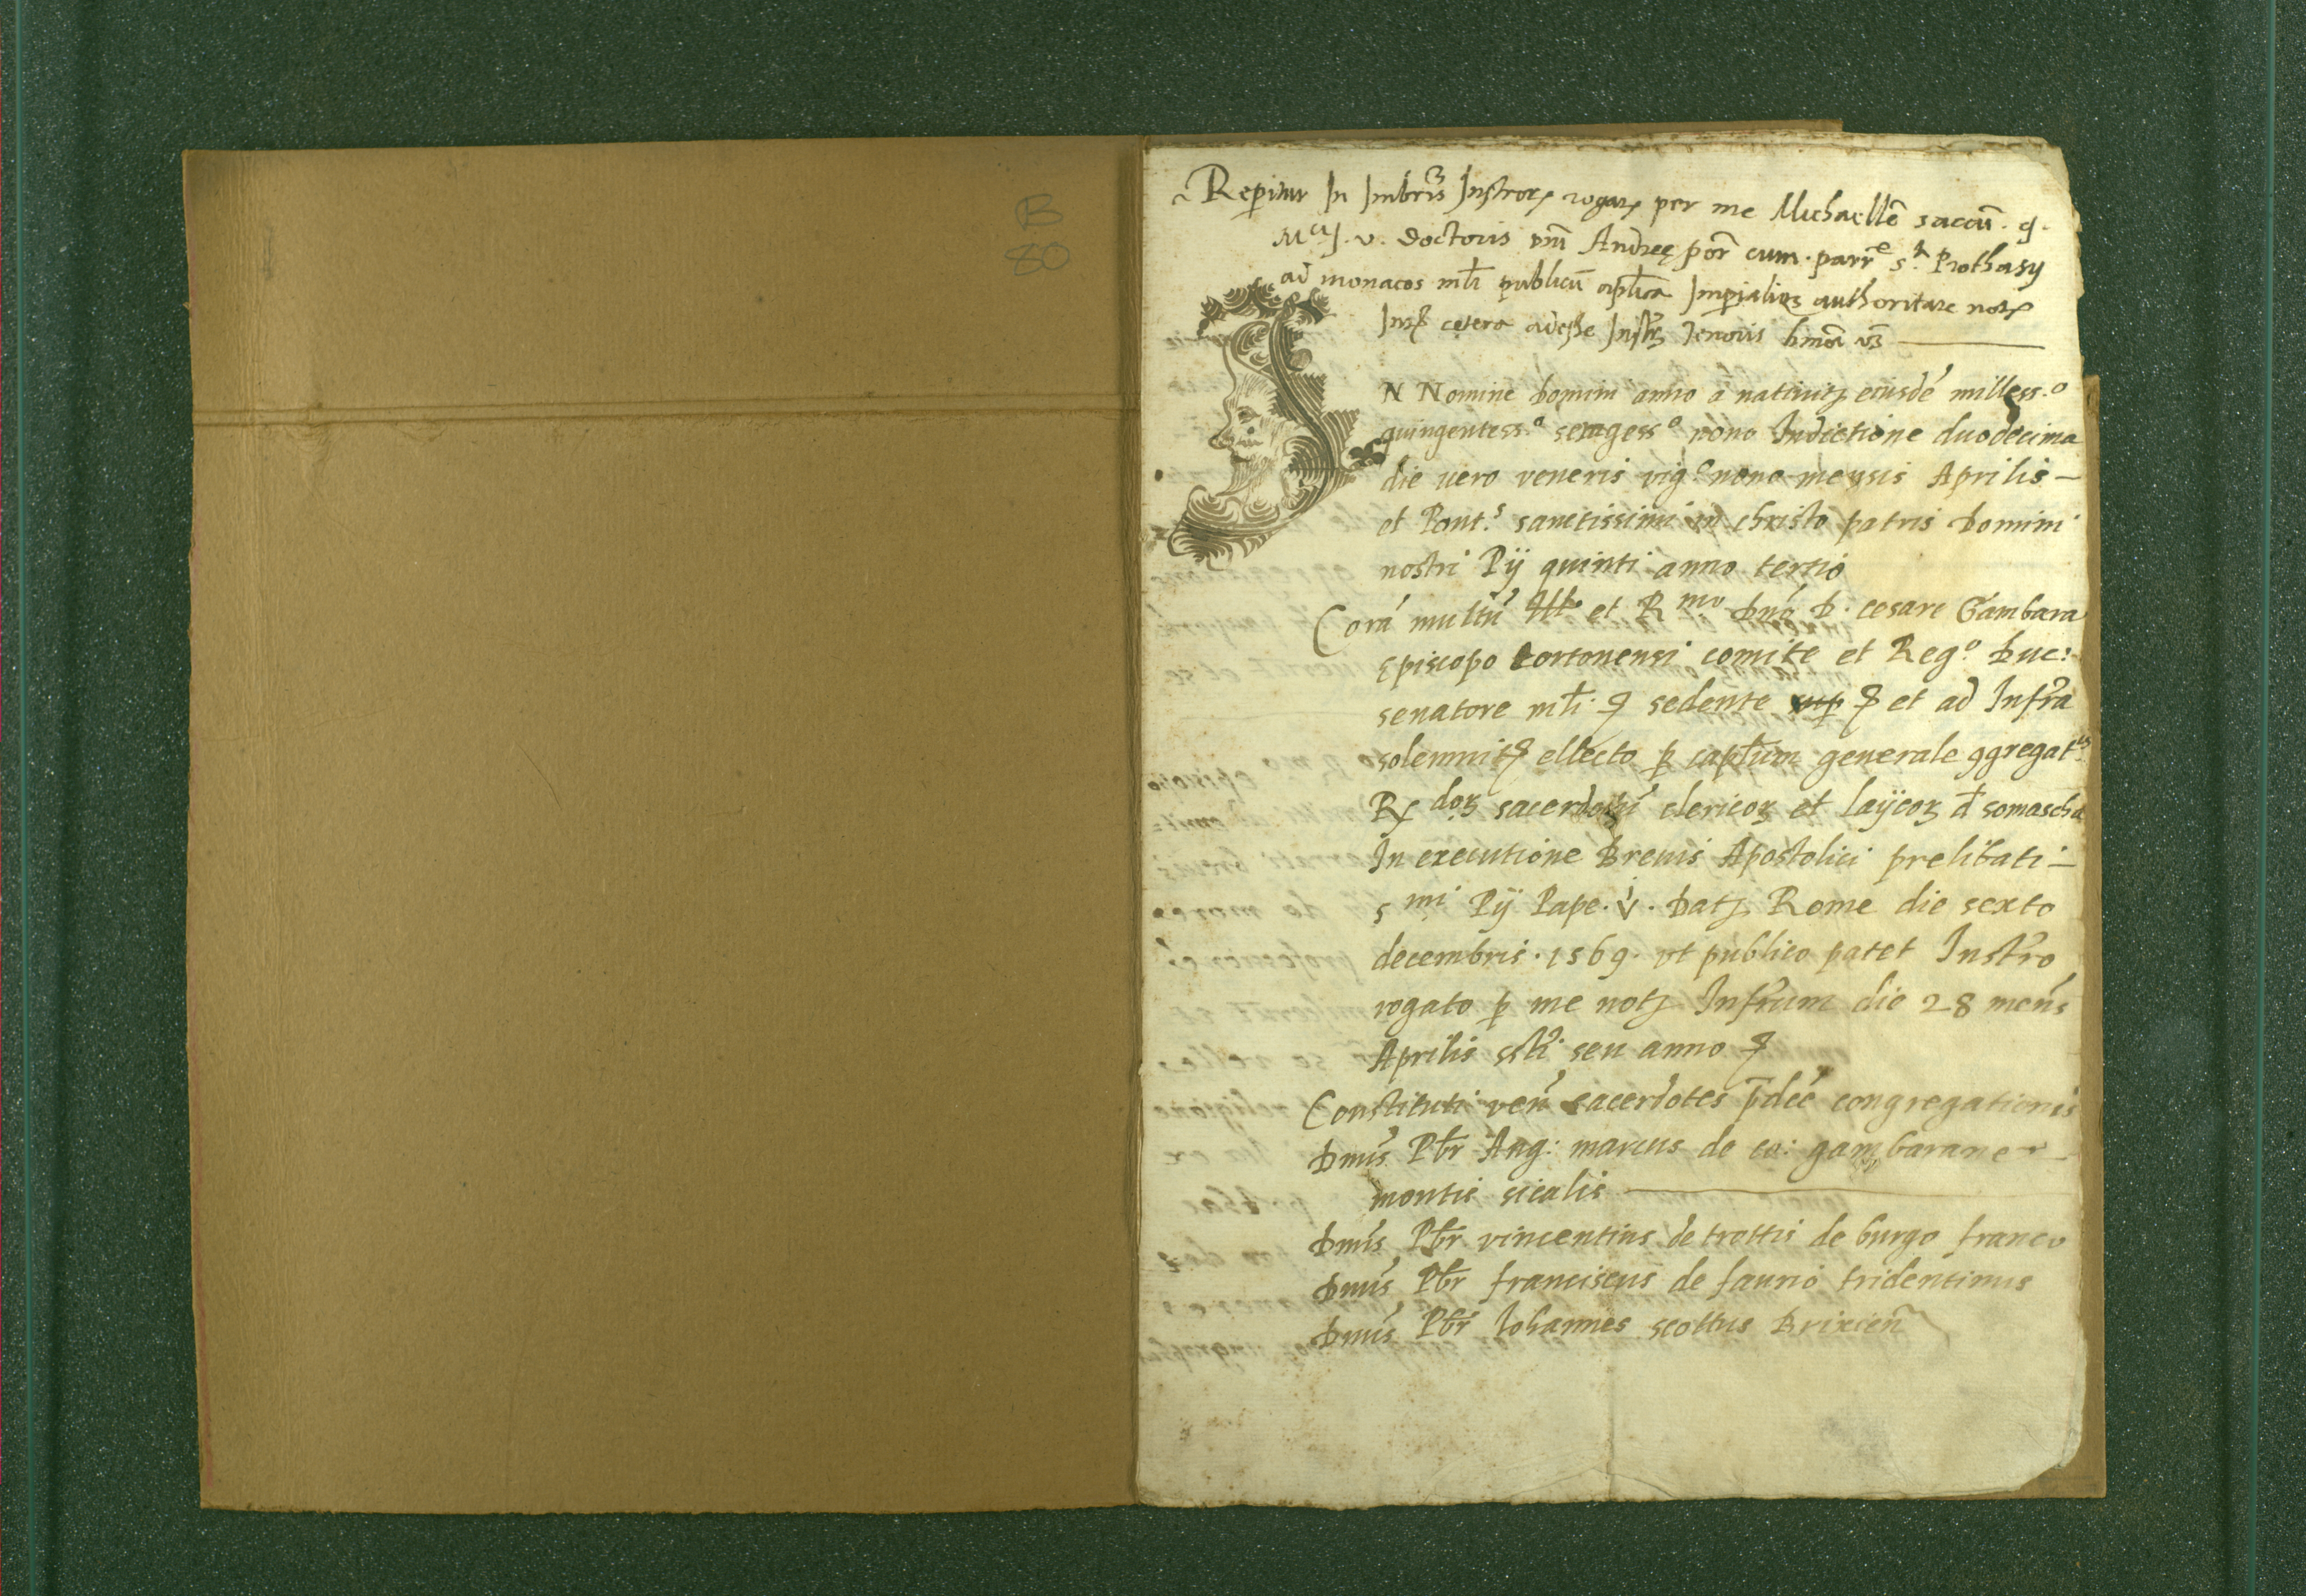 B
80
Reperitur In Imbris Instror rogar per me Michaellē saccū. q.
M.ci J. v. doctoris dni Andreę por cum. parr.e S.ti Prothasij
ad monacos mli publicū aplica Imperialiq; authoritate notr
Int cetera adesse Instr tenoris hmōi vz
IN Nomine domini anno a nativit eiusdē milless.o
quingentess.o sexagess.o nono Indictione duodecima
die uero veneris vig.o nono mensis Aprilis –
et Pont.s sanctissimi in christo patris domini
nostri Pij quinti anno tertio
Corā multū Ill. et R.mo dnō d. cesare Gambara
ępiscopo tortonensi comite et Reg.o duc:
senatore mli. sedente et ad Infra
solemnitr ellecto p captum generale ggregat.is
R dor sacerdotū clericor et layicor d somascha
In executione Brevis Apostolici prelibati –
s.mi Pij Pape. V. dat Rome die sexto
decembris. 1569. vt publico patet Instro
rogato p me not Infrum die 28 mens
Aprilis seu anno
Constituti ven sacerdotes pdce congregationis
dnus Pbr Ang: marcus de co: gambarane
montis sicalis
dnus Pbr vincentius de trottis de burgo franco
dnus Pbr franciscus de faurio tridentinus
dnus Pbr Iohannes scottus Brixien